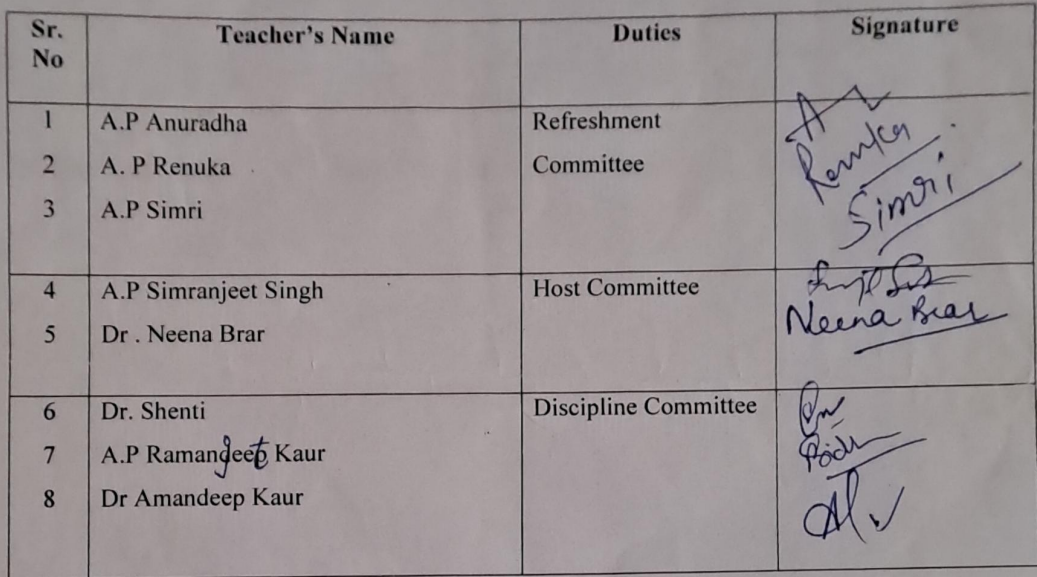 Sr. No Teacher's Name Duties Signature
1 A.P Anuradha Refreshment
2 A. P Renuka Committee Renuka
3 A.P Simri Simri
4 A.P Simranjeet Singh Host Committee
5 Dr . Neena Brar Neena Brar
6 Dr. Shenti Discipline Committee
7 A.P Ramanjeet Kaur
8 Dr Amandeep Kaur